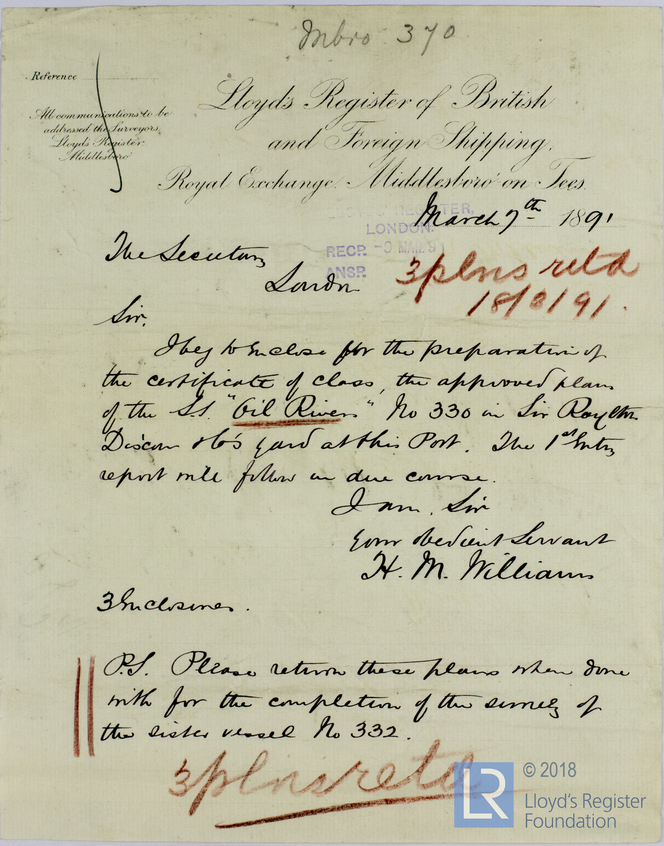 Mbro 370
Reference
All communications to be
addressed the Surveyors,
Lloyd's Register
Middlesboro'
Lloyd's Register of British
and Foreign Shipping,
Royal Exchange, Middlesboro' on Tees.
March 7th 1891
LONDON.
RECD.
ANSD.
The Secretary
London
3 plns retd
18/3/91.
Sir.
I beg to enclose for the preparation of
the certificate of class, the approved plans
of the S.S. "Oil Rivers" No 330 in Sir Raylton
Dixon & Co's yard at this Port. The 1st Entry
report will follow in due course.
I am, Sir
Your obedient Servant
H. M. Williams
3 Enclosures.
P.S. Please return these plans when done
with for the completion of the survey of
the sister vessel No 332.
3 plns retd
LR
© 2018
Lloyd's Register
Foundation